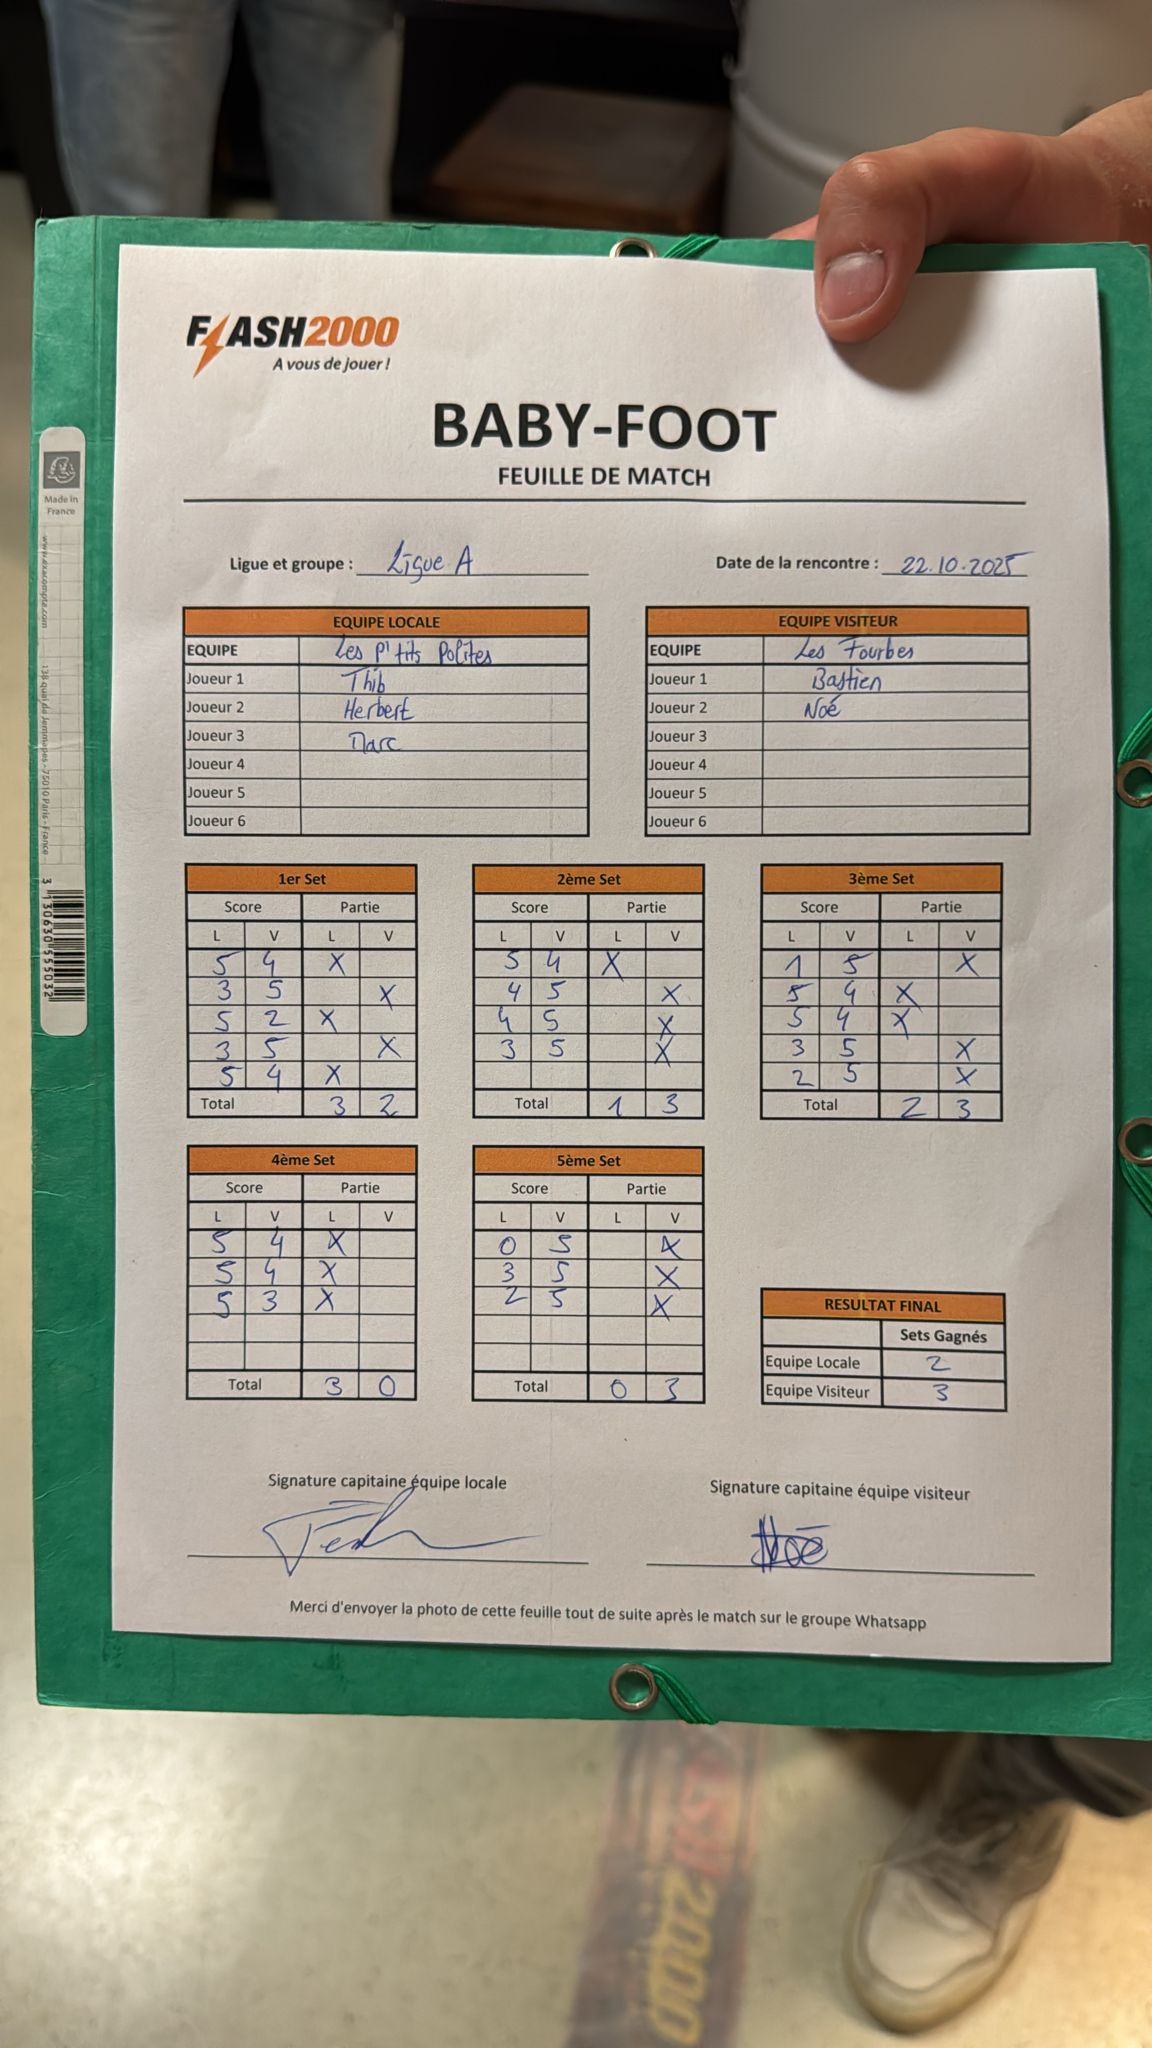 FLASH2000
A vous de jouer !
BABY-FOOT
FEUILLE DE MATCH
Ligue et groupe : Ligue A
Date de la rencontre : 22.10.2025
EQUIPE LOCALE
EQUIPE Les P'tits Polites
Joueur 1 Thib
Joueur 2 Herbert
Joueur 3 Marc
Joueur 4
Joueur 5
Joueur 6
EQUIPE VISITEUR
EQUIPE Les Fourbes
Joueur 1 Bastien
Joueur 2 Noé
Joueur 3
Joueur 4
Joueur 5
Joueur 6
1er Set
Score Partie
L V L V
5 4 X
3 5 X
5 2 X
3 5 X
5 4 X
Total 3 2
2ème Set
Score Partie
L V L V
5 4 X
4 5 X
4 5 X
3 5 X
Total 1 3
3ème Set
Score Partie
L V L V
1 5 X
5 4 X
5 4 X
3 5 X
2 5 X
Total 2 3
4ème Set
Score Partie
L V L V
5 4 X
5 4 X
5 3 X
Total 3 0
5ème Set
Score Partie
L V L V
0 5 X
3 5 X
2 5 X
Total 0 3
RESULTAT FINAL
Sets Gagnés
Equipe Locale 2
Equipe Visiteur 3
Signature capitaine équipe locale
Signature capitaine équipe visiteur
Noé
Merci d'envoyer la photo de cette feuille tout de suite après le match sur le groupe Whatsapp
Made in
France
www.exacompta.com
138 quai de Jemmapes - 75010 Paris - France
3 130630 555032
2000